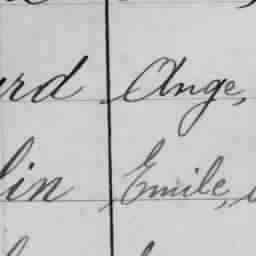 rd Ange,
lin Emile,